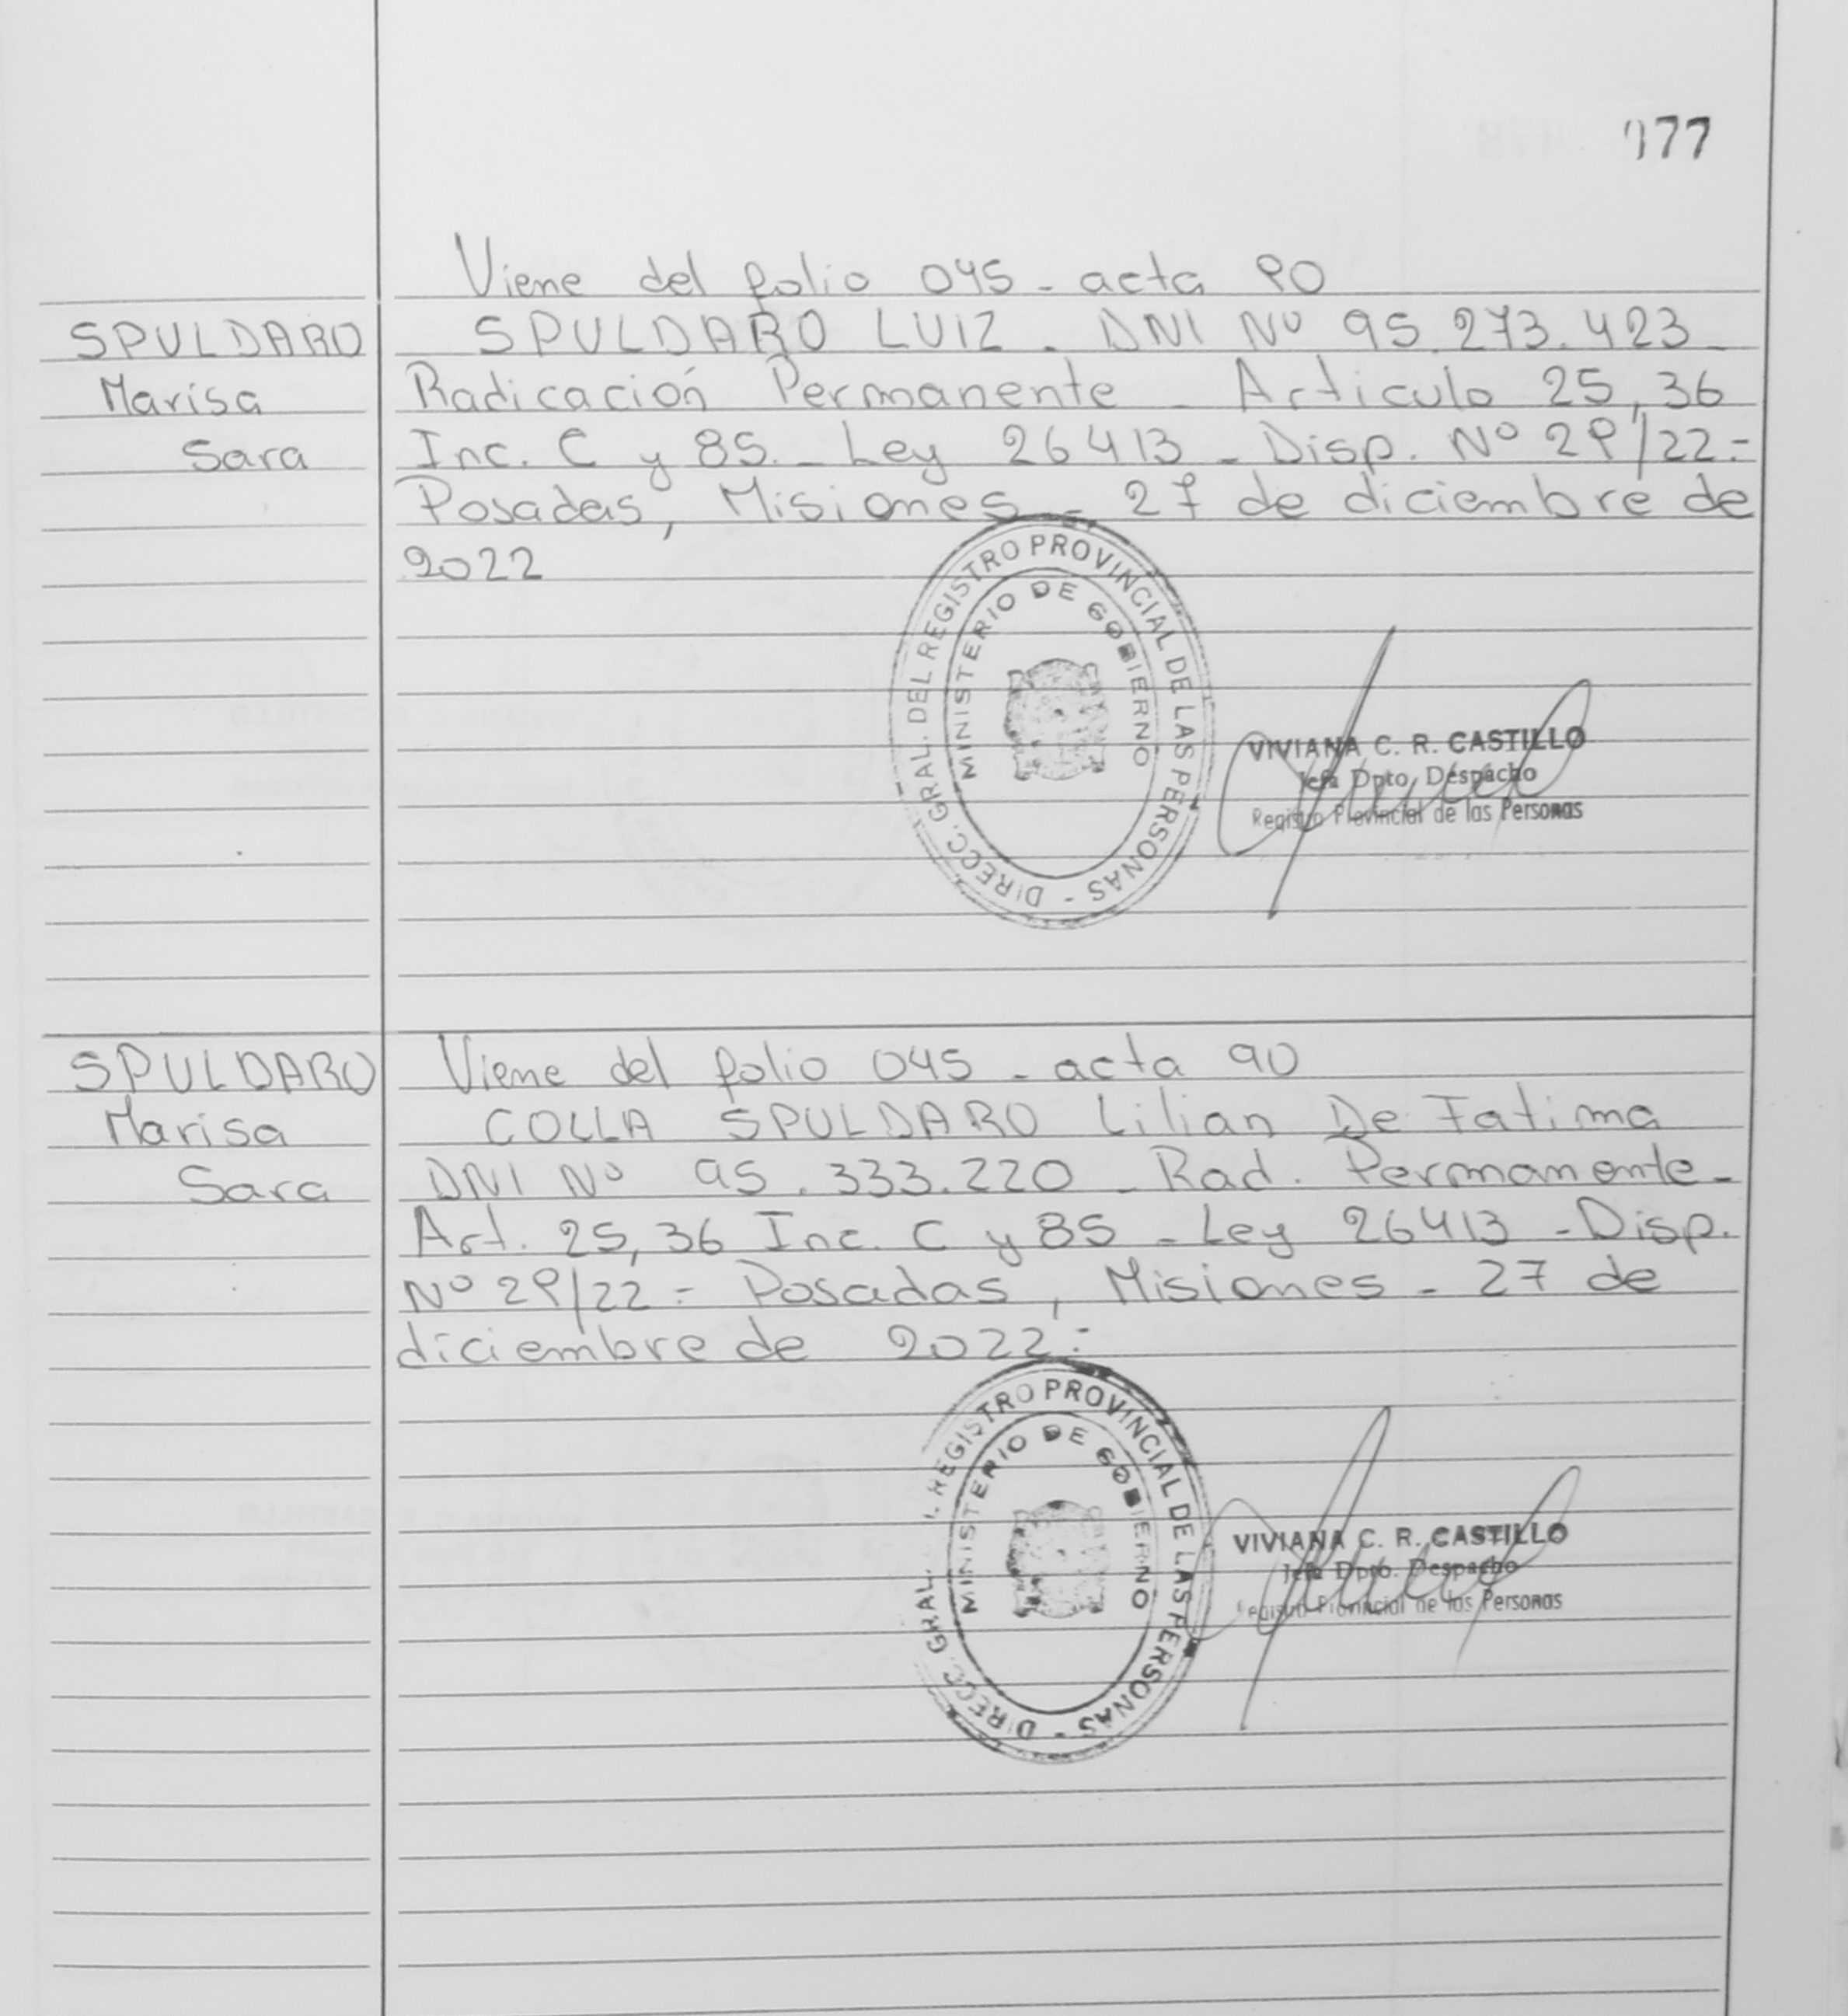 077
Viene del folio 045 - acta 90
SPULDARO
Marisa
Sara
SPULDARO LUIZ - DNI Nº 95.273.423 -
Radicación Permanente - Articulo 25,36
Inc. C y 85. - Ley 26413 - Disp. Nº 29/22 =
Posadas, Misiones - 27 de diciembre de
2022
DIRECC. GRAL. DEL REGISTRO PROVINCIAL DE LAS PERSONAS -
MINISTERIO DE GOBIERNO
VIVIANA C. R. CASTILLO
Jefa Dpto. Despacho
Registro Provincial de las Personas
SPULDARO
Marisa
Sara
Viene del folio 045 - acta 90
COLLA SPULDARO Lilian De Fatima
DNI Nº 95.333.220 - Rad. Permanente -
Art. 25,36 Inc. C y 85 - Ley 26413 - Disp.
Nº 29/22 = Posadas, Misiones - 27 de
diciembre de 2022 =
DIRECC. GRAL. REGISTRO PROVINCIAL DE LAS PERSONAS -
MINISTERIO DE GOBIERNO
VIVIANA C. R. CASTILLO
Jefa Dpto. Despacho
Registro Provincial de las Personas